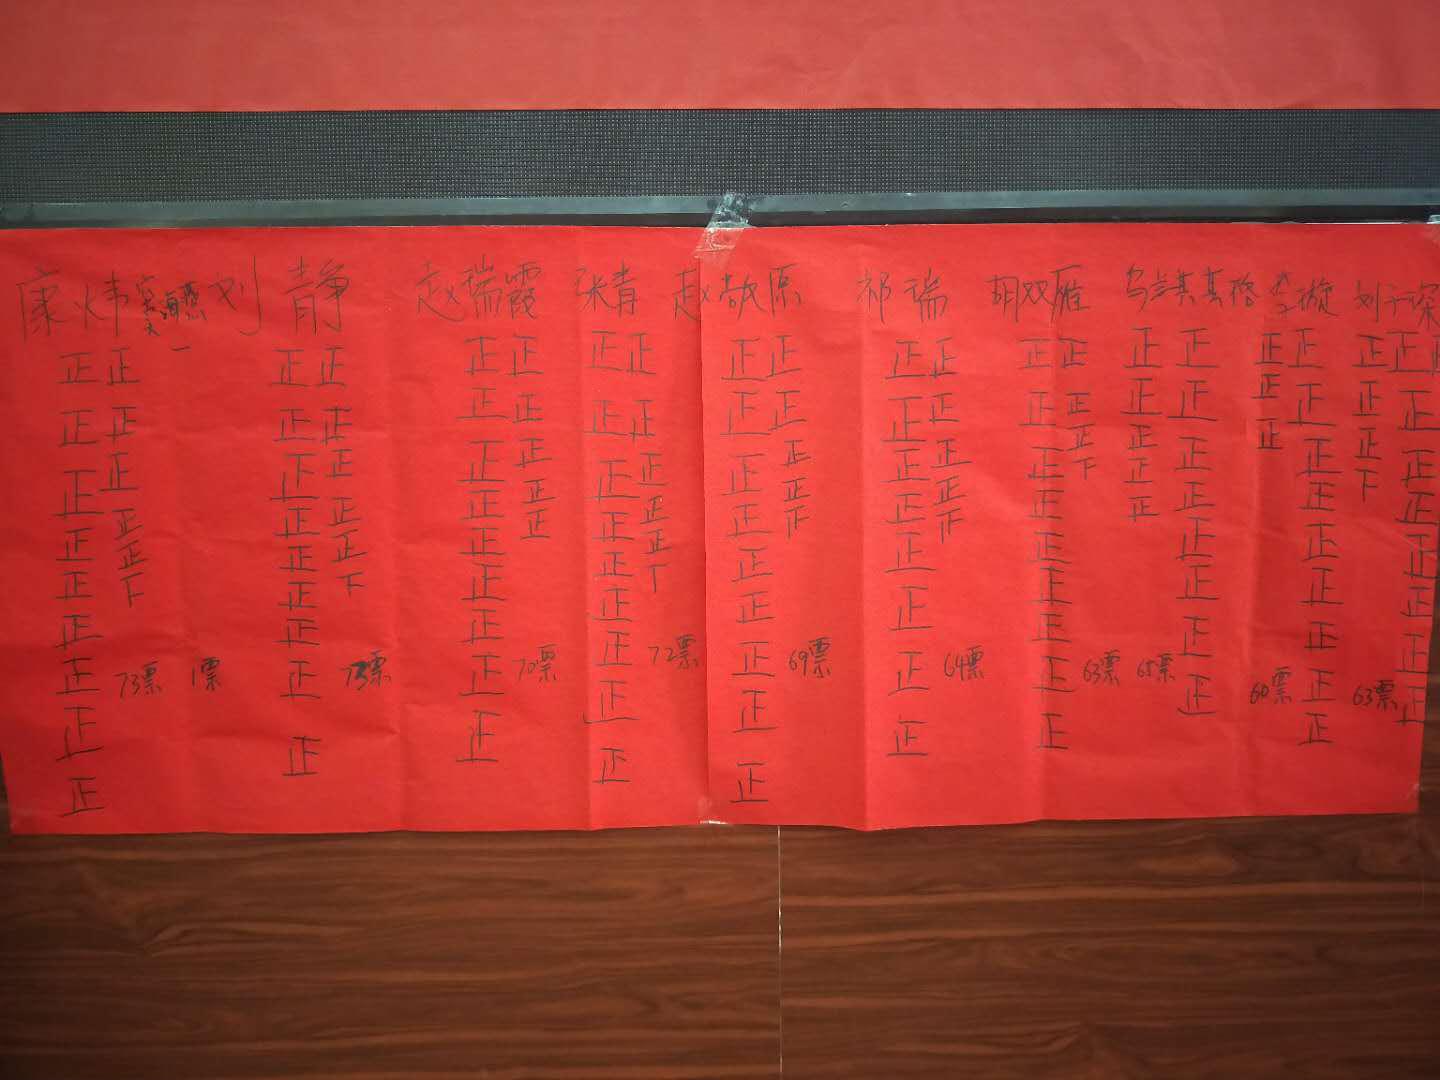 康炜 窦海燕 刘静 赵瑞霞 张青 赵敬原 祁瑞 胡双雁 乌兰其其格 李璇 刘子琛
一
正正 正正 正正 正正 正正 正正 正正 正正 正正 正正
正正 正正 正正 正正 正正 正正 正正 正正 正正 正正
正正 正正 正正 正正 正正 正正 正正 正正 正正 正正
正正 正正 正正 正正 正正 正正 正下 正正 正 正下
正正 正正 正正 正正 正下 正下 正 正正 正 正
正下 正下 正 正下 正 正 正 正 正 正
正 正 正 正 正 正 正 正 正 正
正 正 正 正 正 正 正 正 正 正
正 正 正 正
73票 1票 73票 70票 72票 69票 64票 63票 65票 60票 63票